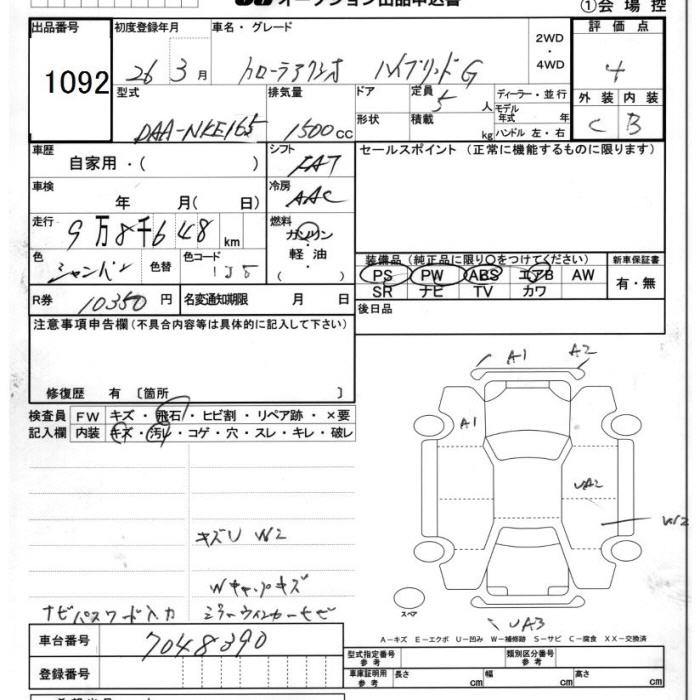 オークション出品申込書
①会場控
出品番号 初度登録年月 車名・グレード 2WD・4WD 評価点
1092 26 3月 カローラアクシオ ハイブリッドG 4
型式 排気量 ドア 定員 ディーラー・並行 外装 内装
DAA-NKE165 1500cc 5人 モデル年式 年 C B
形状 積載 kg ハンドル 左・右
車歴 シフト セールスポイント (正常に機能するものに限ります)
自家用・( ) FAT
車検 冷房
年 月( 日) AAC
走行 燃料
9万8千648km ガソリン
軽油
( )
色 色替 色コード 装備品(純正品に限り○をつけてください) 新車保証書
シャンパン PS PW ABS エアB AW 有・無
SR ナビ TV カワ
R券 10350円 名変通知期限 月 日
後日品
注意事項申告欄(不具合内容等は具体的に記入して下さい)
修復歴 有 〔箇所 〕
検査員 FW キズ・飛石・ヒビ割・リペア跡・×要
記入欄 内装 キズ・汚レ・コゲ・穴・スレ・キレ・破レ
A1 A2
A1
UA2
W2
キズU W2
Wキャップキズ
ナビパスワード入力 ミラーウィンカーヒビ
スペア
UA3
A-キズ E-エクボ U-凹み W-補修跡 S-サビ C-腐食 XX-交換済
車台番号 7048390
型式指定番号 参考 類別区分番号 参考
登録番号
車庫証明用 参考 長さ cm 幅 cm 高さ cm